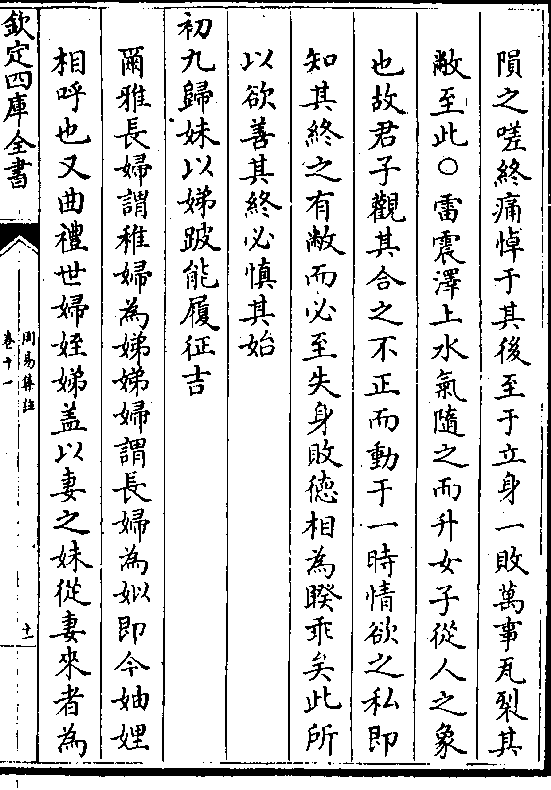 隕之嗟終痛悼于其後至于立身一敗萬事瓦裂其
敝至此○雷震澤上水氣隨之而升女子從人之象
也故君子觀其合之不正而動于一時情欲之私即
知其終之有敝而必至失身敗德相為睽乖矣此所
以欲善其終必慎其始
初九歸妹以娣跛能履征吉
爾雅長婦謂稚婦為娣娣婦謂長婦為姒即今妯娌
相呼也又曲禮世婦姪娣盖以妻之妹從妻來者為
欽定四庫全書
周易集註
卷十一
十一